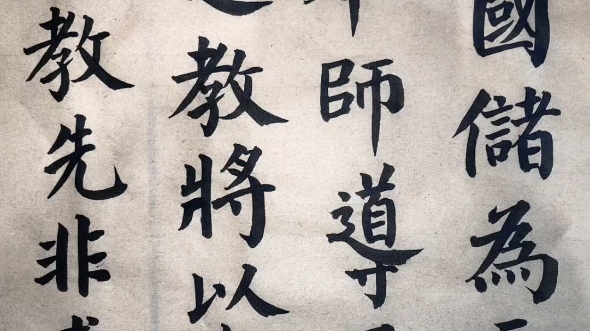 國儲為
師導
教將以
教先非